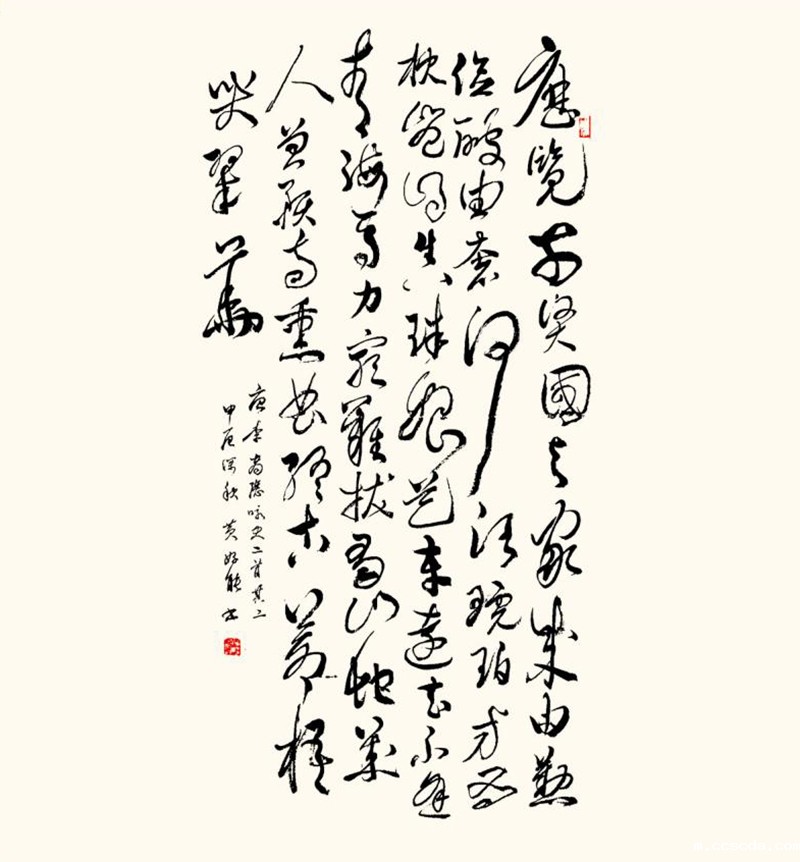 歷覽前賢國與家成由勤
儉破由奢何須琥珀方為
枕豈得真珠始是車運去不逢
青海馬力窮難拔蜀山蛇幾
人曾預南熏曲終古蒼梧
哭翠華
唐李商隱咏史二首其二
甲辰深秋 黄好能书